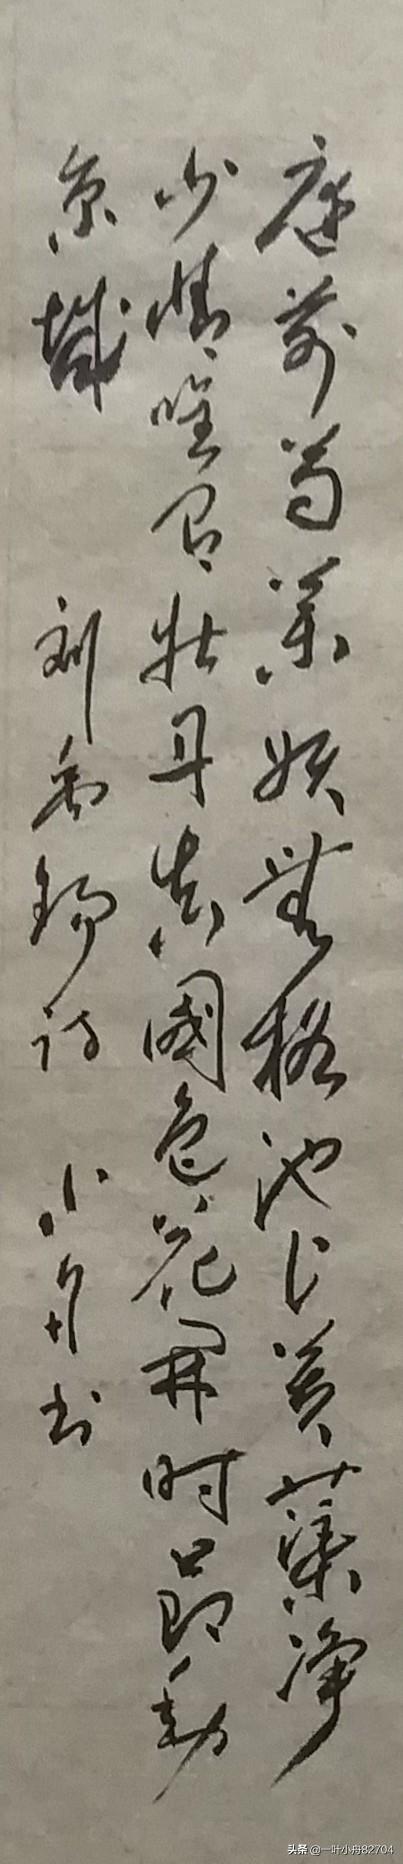 庭前芍药妖無格池上芙蕖净
少情唯有牡丹真國色花開时节動
京城
刘禹锡诗
小舟书
头条 @一叶小舟82704